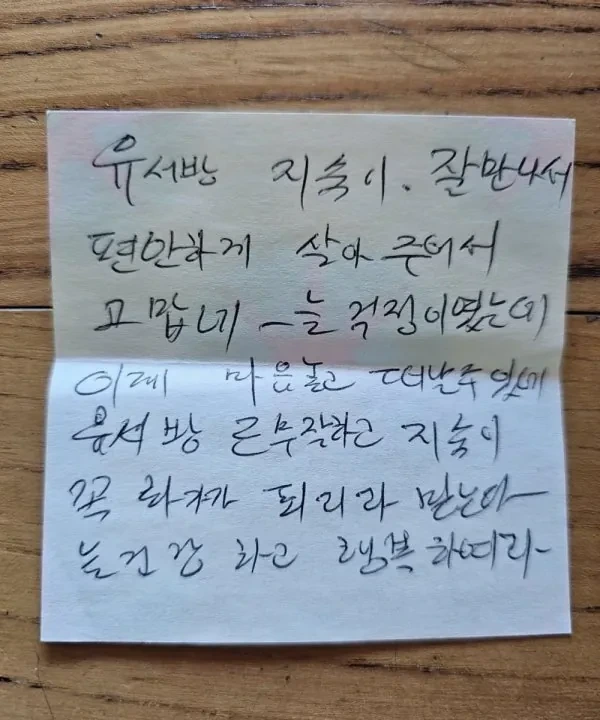 유서방 지숙이. 잘만나서
편안하게 살아 주어서
고맙네 늘 걱정이였는데
이제 마음놓고 떠날수있네
유서방 지숙이
꼭 믿는다
늘건강 하고 행복하여라